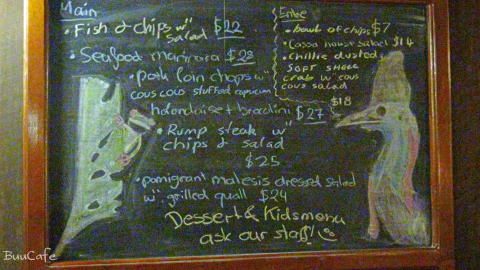 Main
• Fish & chips w"
salad $22
• Seafood marinara $28
• pork loin chops w"
cous cous stuffed capsicum
holandaise + brocolini $27
• Rump steak w"
chips & salad
$25
• pomigrant molesis dressed salad
w" grilled quail $24
Dessert & Kidsmenu
ask our staff!
Entree
• bowl of chips $7
• Cassa house salad $14
• Chillie dusted
soft shell
crab w" cous
cous salad
$18
BuuCafe